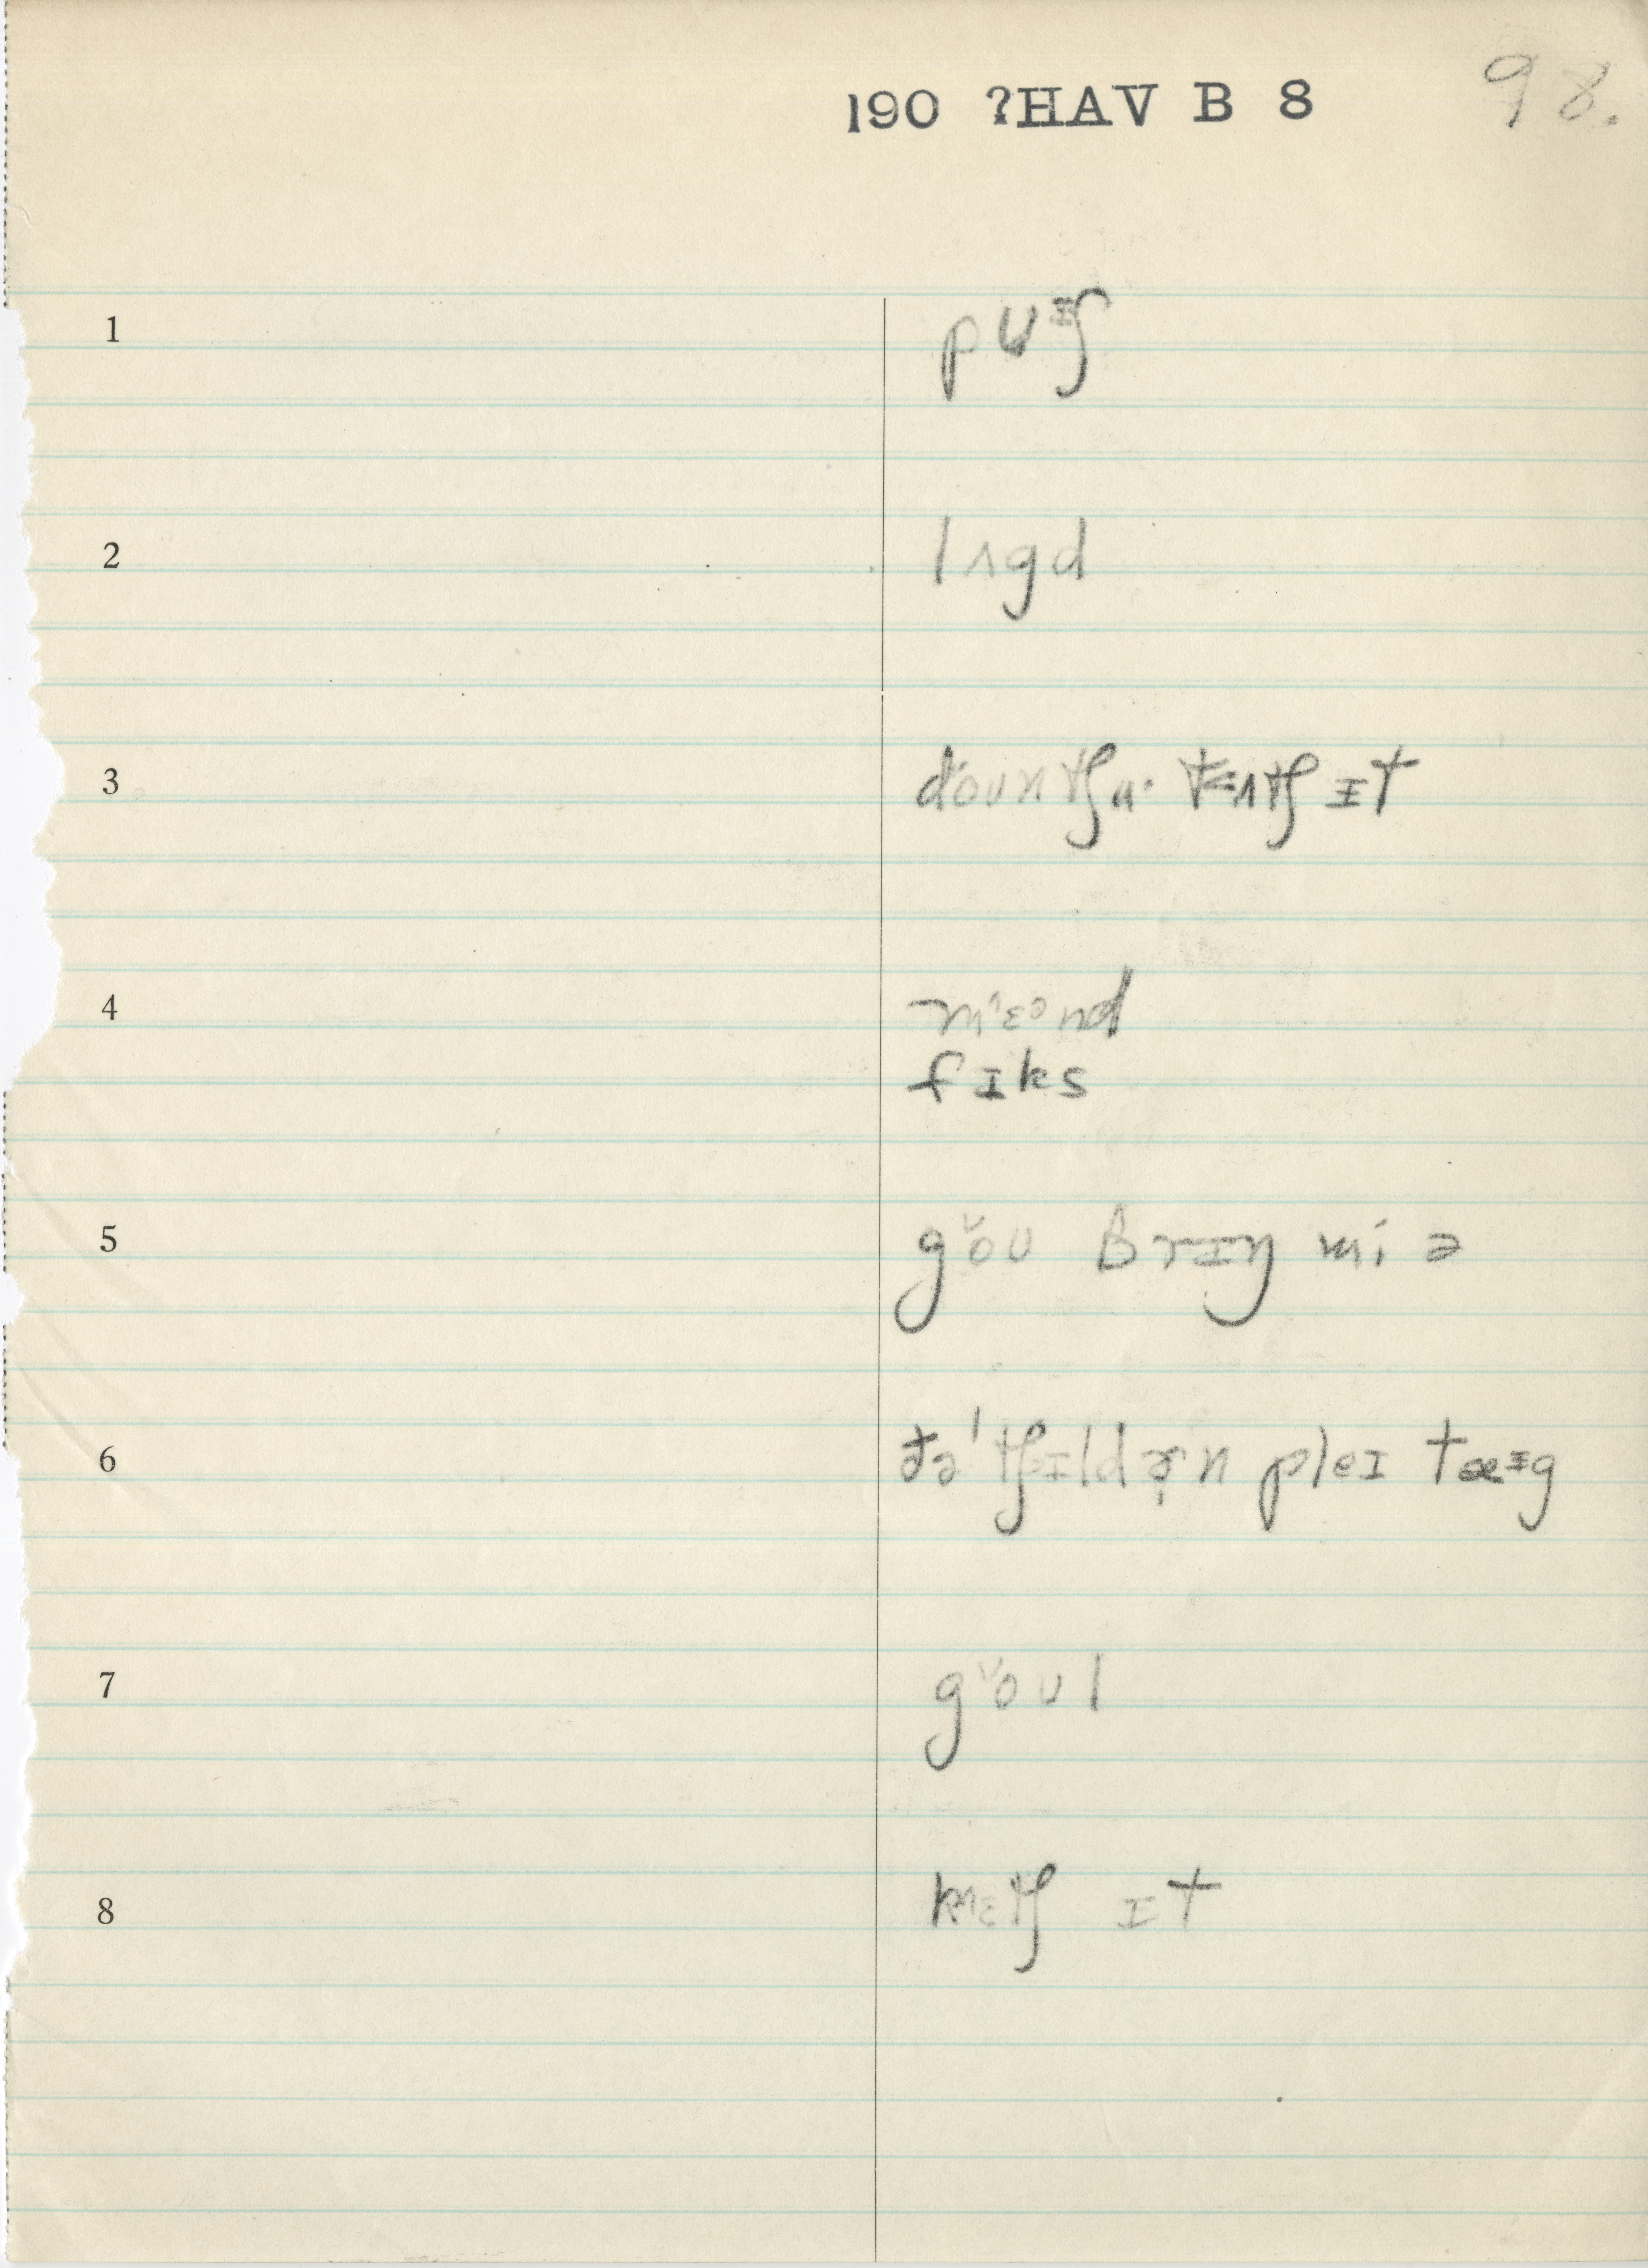 190 ?HAV B 8 98.
1 pʊᵻʃ
2 lʌgd
3 doʊn tʃu· tʌtʃ ɪt
4 mɛᵊnd
fɪks
5 gŏʊ brɪŋ mi ə
6 ðə ˈtʃɪldɚn pleɪ tæᵻg
7 gŏʊl
8 kɛtʃ ɪt